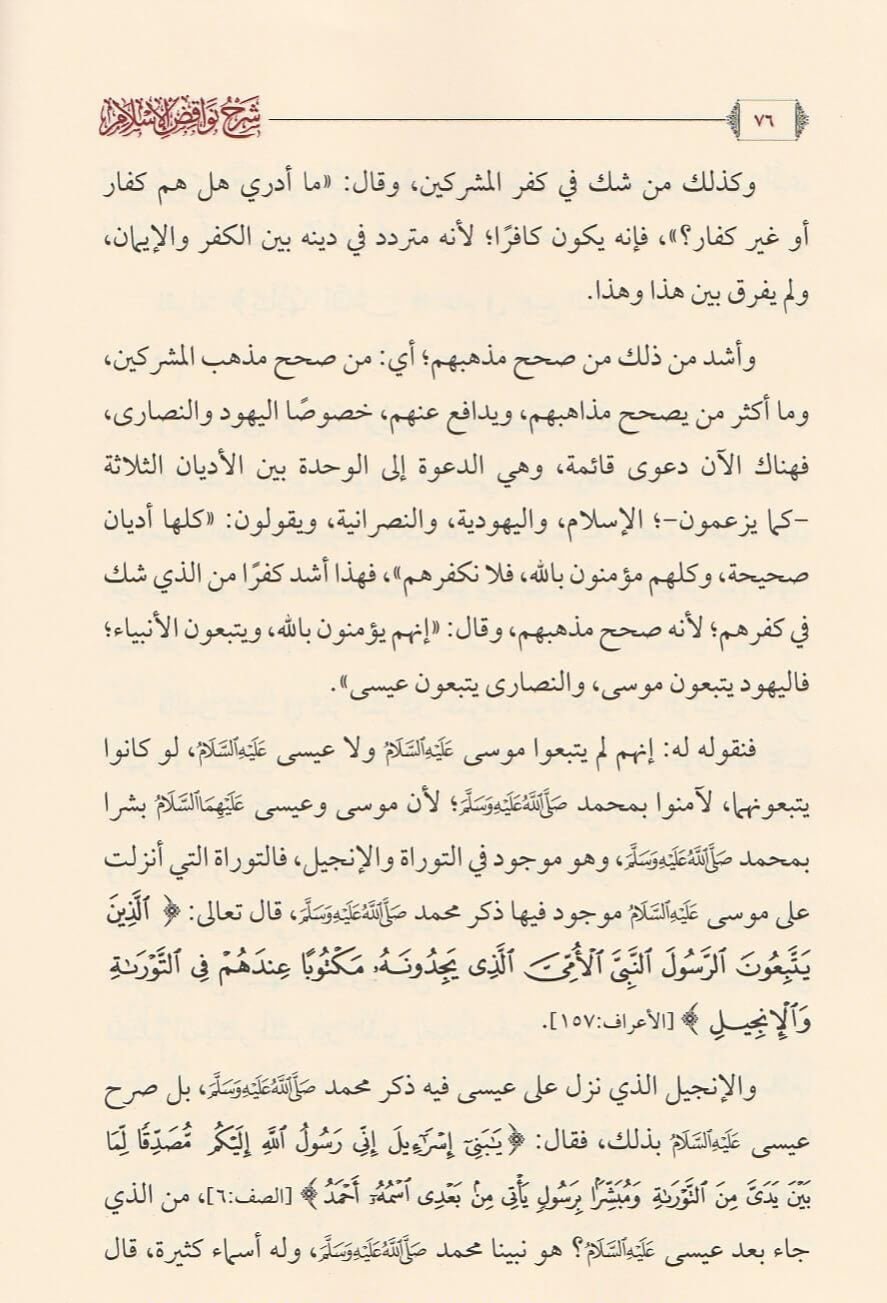 ٧٦
شرح نواقض الإسلام
وكذلك من شك في كفر المشركين، وقال: «ما أدري هل هم كفار
أو غير كفار؟»، فإنه يكون كافرًا؛ لأنه متردد في دينه بين الكفر والإيمان،
ولم يفرق بين هذا وهذا.
وأشد من ذلك من صحح مذهبهم؛ أي: من صحح مذهب المشركين،
وما أكثر من يصحح مذاهبهم، ويدافع عنهم، خصوصًا اليهود والنصارى،
فهناك الآن دعوى قائمة، وهي الدعوة إلى الوحدة بين الأديان الثلاثة
-كما يزعمون-؛ الإسلام، واليهودية، والنصرانية، ويقولون: «كلها أديان
صحيحة، وكلهم مؤمنون بالله، فلا نكفرهم»، فهذا أشد كفرًا من الذي شك
في كفرهم؛ لأنه صحح مذهبهم، وقال: «إنهم يؤمنون بالله، ويتبعون الأنبياء؛
فاليهود يتبعون موسى، والنصارى يتبعون عيسى».
فنقوله له: إنهم لم يتبعوا موسى عَلَيْهِ السَّلَامُ ولا عيسى عَلَيْهِ السَّلَامُ، لو كانوا
يتبعونهما، لآمنوا بمحمد صَلَّى اللَّهُ عَلَيْهِ وَسَلَّمَ؛ لأن موسى وعيسى عَلَيْهِمَا السَّلَامُ بشرا
بمحمد صَلَّى اللَّهُ عَلَيْهِ وَسَلَّمَ، وهو موجود في التوراة والإنجيل، فالتوراة التي أنزلت
على موسى عَلَيْهِ السَّلَامُ موجود فيها ذكر محمد صَلَّى اللَّهُ عَلَيْهِ وَسَلَّمَ، قال تعالى: ﴿ ٱلَّذِينَ
يَتَّبِعُونَ ٱلرَّسُولَ ٱلنَّبِيَّ ٱلْأُمِّيَّ ٱلَّذِى يَجِدُونَهُۥ مَكْتُوبًا عِندَهُمْ فِى ٱلتَّوْرَىٰةِ
وَٱلْإِنجِيلِ ﴾ [الأعراف:١٥٧].
والإنجيل الذي نزل على عيسى فيه ذكر محمد صَلَّى اللَّهُ عَلَيْهِ وَسَلَّمَ، بل صرح
عيسى عَلَيْهِ السَّلَامُ بذلك، فقال: ﴿ يَٰبَنِىٓ إِسْرَٰٓءِيلَ إِنِّى رَسُولُ ٱللَّهِ إِلَيْكُم مُّصَدِّقًا لِّمَا
بَيْنَ يَدَىَّ مِنَ ٱلتَّوْرَىٰةِ وَمُبَشِّرًۢا بِرَسُولٍ يَأْتِى مِنۢ بَعْدِى ٱسْمُهُۥٓ أَحْمَدُ ﴾ [الصف:٦]، من الذي
جاء بعد عيسى عَلَيْهِ السَّلَامُ؟ هو نبينا محمد صَلَّى اللَّهُ عَلَيْهِ وَسَلَّمَ، وله أسماء كثيرة، قال